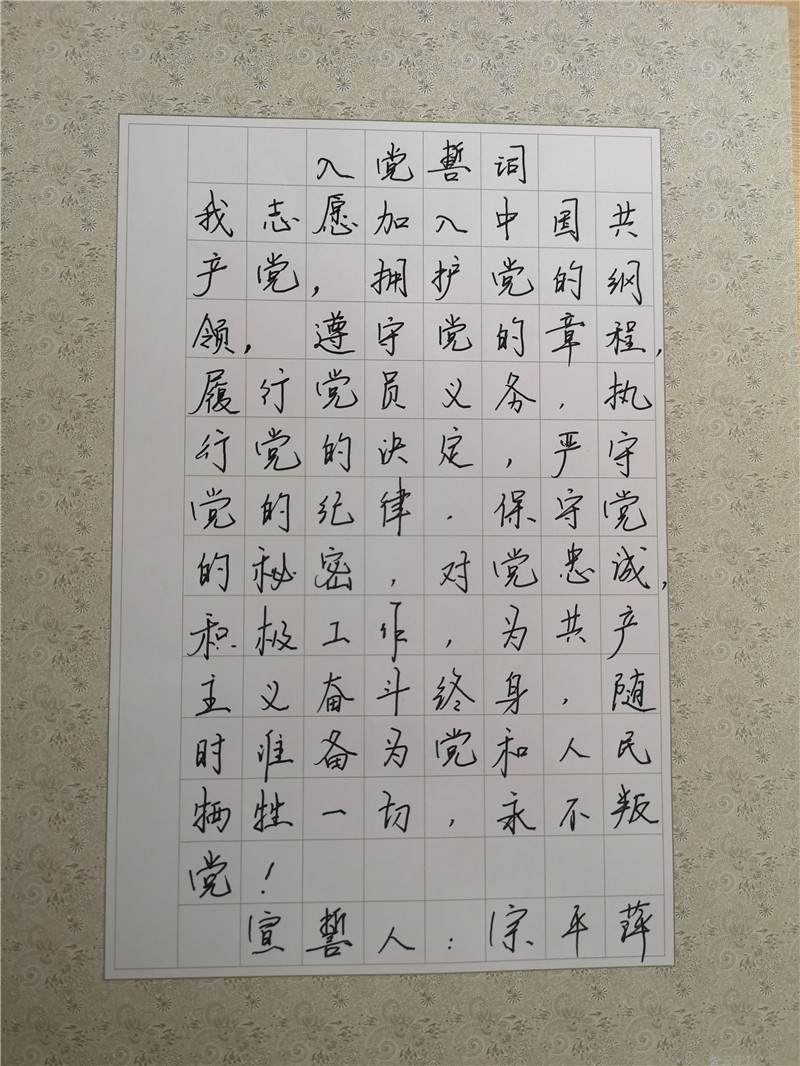 入党誓词
我志愿加入中国共
产党，拥护党的纲
领，遵守党的章程，
履行党员义务，执
行党的决定，严守
党的纪律，保守党
的秘密，对党忠诚，
积极工作，为共产
主义奋斗终身，随
时准备为党和人民
牺牲一切，永不叛
党！
宣誓人：宗平萍